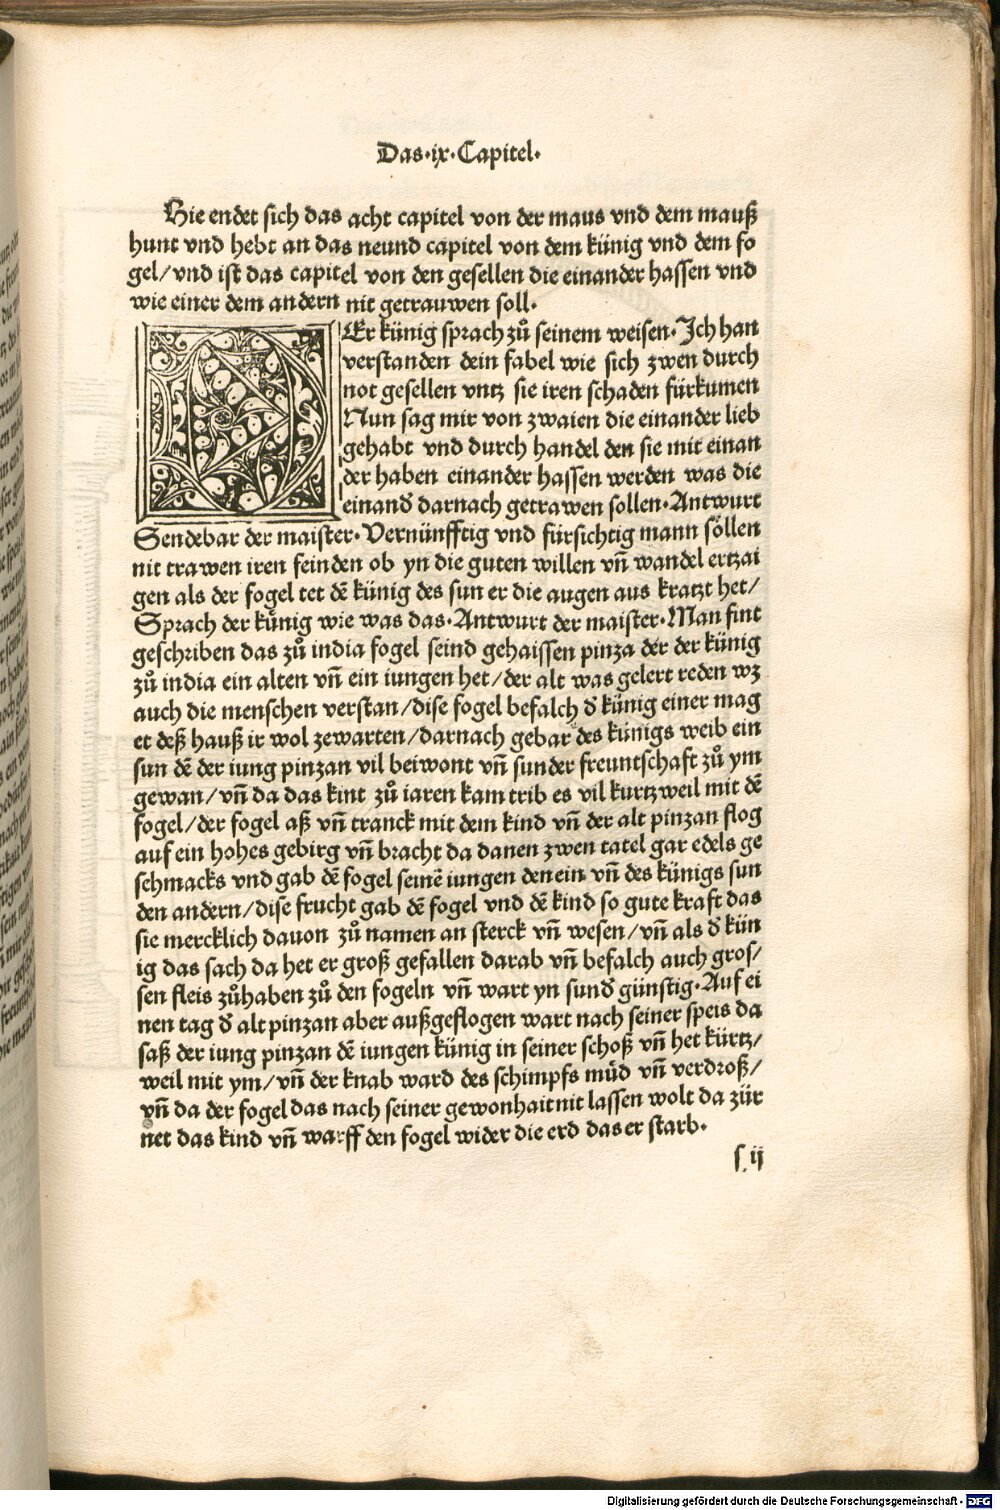 Das·ix·Capitel·
Hie endet sich das acht capitel von der maus vnd dem mauß
hunt vnd hebt an das neund capitel von dem künig vnd dem fo
gel/vnd ist das capitel von den gesellen die einander hassen vnd
wie einer dem andern nit getrauwen soll·
DEr künig sprach zuͦ seinem weisen·Ich han
verstanden dein fabel wie sich zwen durch
not gesellen vntz sie iren schaden fürkumen
Nun sag mir von zwaien die einander lieb
gehabt vnd durch handel den sie mit einan
der haben einander hassen werden was die
einand̄ darnach getrawen sollen·Antwurt
Sendebar der maister·Vernünfftig vnd fürsichtig mann söllen
nit trawen iren feinden ob yn die guten willen vn̄ wandel ertzai
gen als der fogel tet dē künig des sun er die augen aus kratzt het/
Sprach der künig wie was das·Antwurt der maister·Man fint
geschriben das zuͦ india fogel seind gehaissen pinza der der künig
zuͦ india ein alten vn̄ ein iungen het/der alt was gelert reden wz
auch die menschen verstan/dise fogel befalch d̄ künig einer mag
et deß hauß ir wol zewarten/darnach gebar des künigs weib ein
sun dē der iung pinzan vil beiwont vn̄ sunder freuntschaft zuͦ ym
gewan/vn̄ da das kint zuͦ iaren kam trib es vil kurtzweil mit dē
fogel/der fogel aß vn̄ tranck mit dem kind vn̄ der alt pinzan flog
auf ein hohes gebirg vn̄ bracht da danen zwen tatel gar edels ge
schmacks vnd gab dē fogel seinē iungen den ein vn̄ des künigs sun
den andern/dise frucht gab dē fogel vnd dē kind so gute kraft das
sie mercklich dauon zuͦ namen an sterck vn̄ wesen/vn̄ als d̄ kün
ig das sach da het er groß gefallen darab vn̄ befalch auch gros/
sen fleis zuͦhaben zuͦ den fogeln vn̄ wart yn sund̄ günstig·Auf ei
nen tag d̄ alt pinzan aber außgeflogen wart nach seiner speis da
saß der iung pinzan dē iungen künig in seiner schoß vn̄ het kürtz/
weil mit ym/vn̄ der knab ward des schimpfs müd vn̄ verdroß/
vn̄ da der fogel das nach seiner gewonhait nit lassen wolt da zür
net das kind vn̄ warff den fogel wider die erd das er starb·
s ij
Digitalisierung gefördert durch die Deutsche Forschungsgemeinschaft - DFG